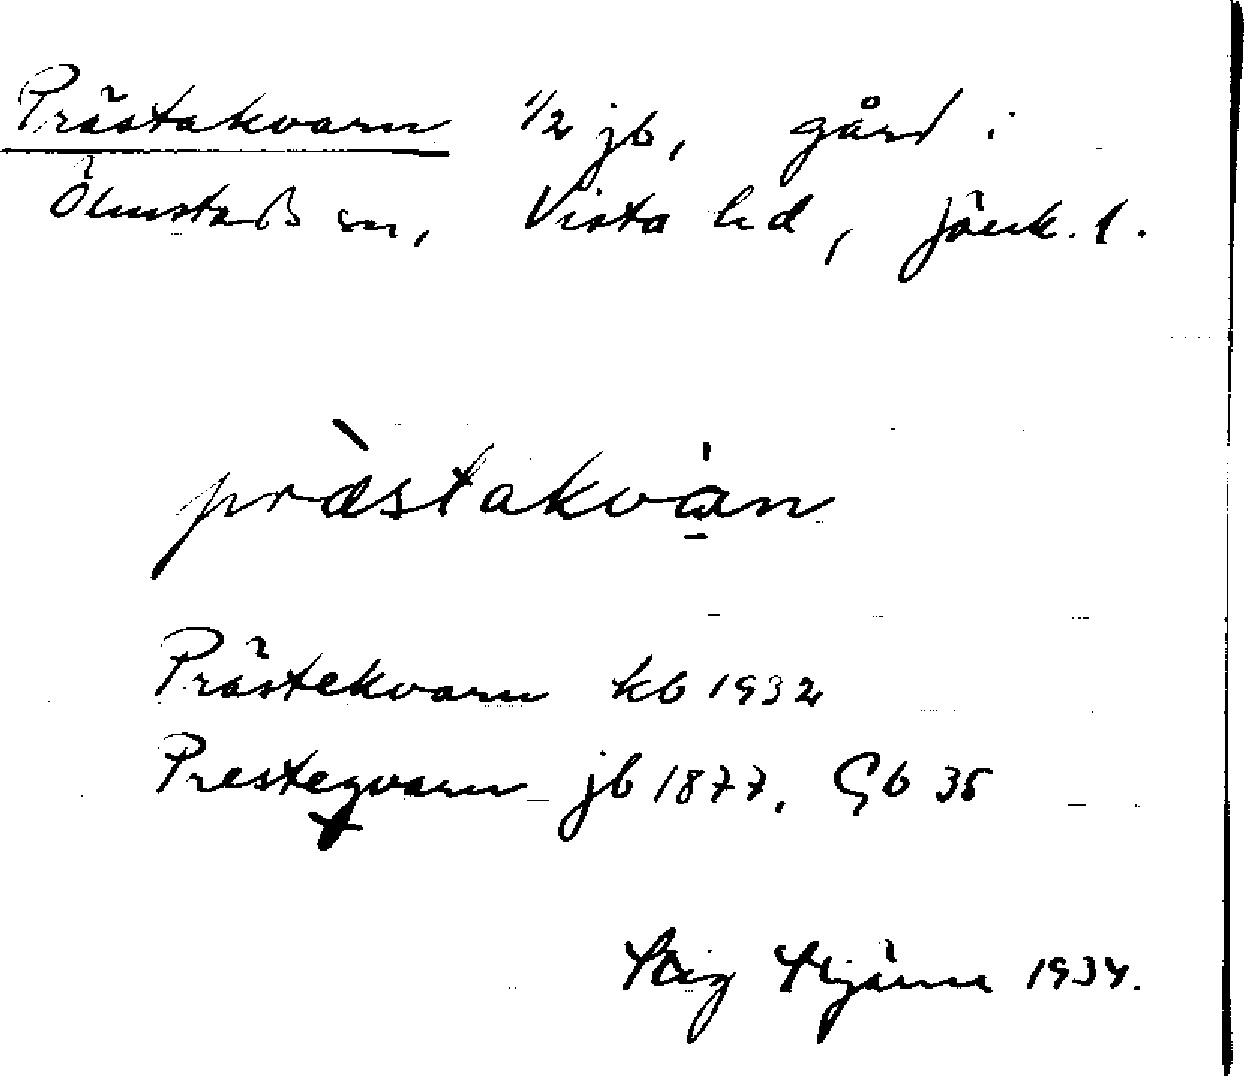 Prästakvarn 1/2 jb, gård i
Ölmstads sn, Vista hd, Jönk. l.
præ̀stakvàn
Prästekvarn kb 1932
Presteqvarn jb 1877, Gb 35
Stig Stjärne 1934.